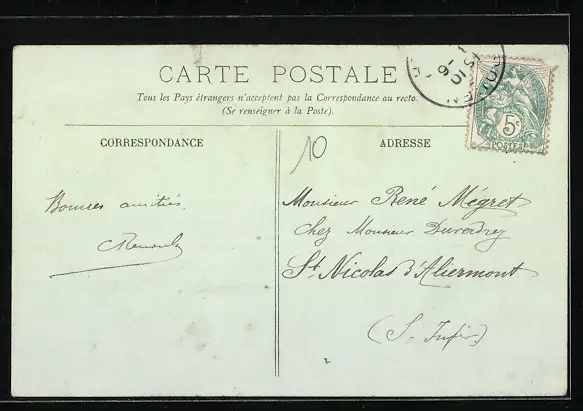 CARTE POSTALE
Tous les Pays étrangers n'acceptent pas la Correspondance au recto.
(Se renseigner à la Poste).
CORRESPONDANCE
ADRESSE
10
5c
POSTES
ROUEN
Bonnes amitiés
Monsieur René Mégret
chez Monsieur
St Nicolas d'Aliermont
(S. Infre)